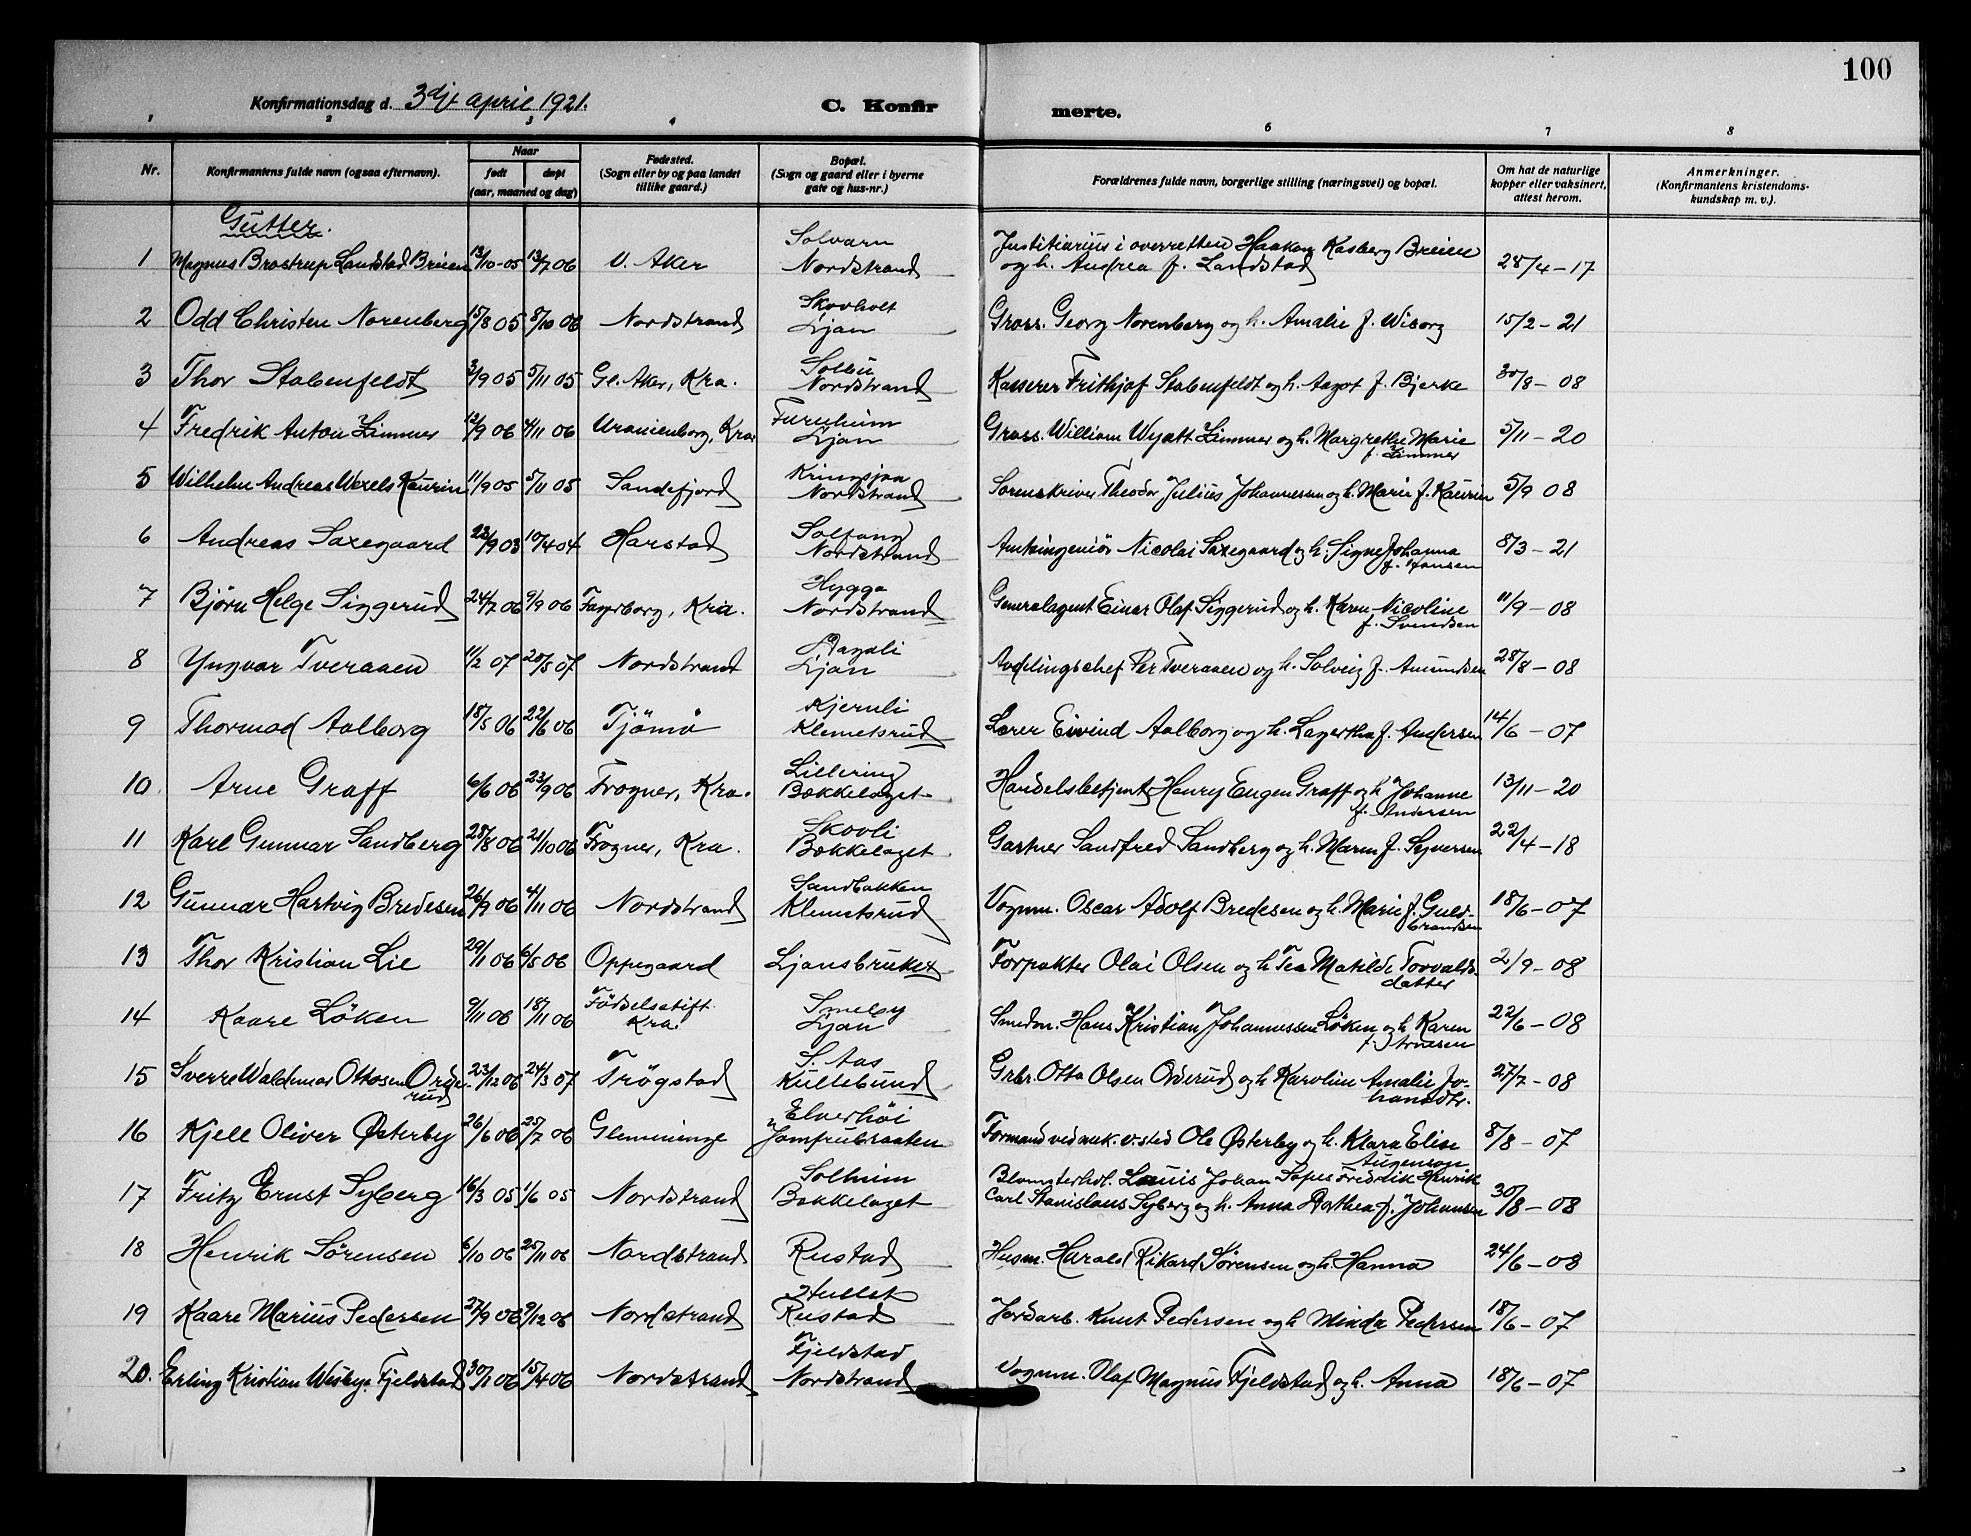 100
Konfirmationsdag d. 3dje april 1921.
C. Konfir
merte.
1 2 3 4 6 7 8
Nr.
Konfirmantens fulde navn (ogsaa efternavn).
Naar
født døpt
(aar, maaned og dag)
Fødested.
(Sogn eller by og paa landet
tillike gaard.)
Bopæl.
(Sogn og gaard eller i byerne
gate og hus-nr.)
Forældrenes fulde navn, borgerlige stilling (næringsvei) og bopæl.
Om hat de naturlige
kopper eller vaksinert,
attest herom.
Anmerkninger.
(Konfirmantens kristendoms-
kundskap m. v.).
Gutter.
Solvarn
1 Magnus Brostrup Landstad Breien 13/10-05 13/7 06 V. Aker Nordstrand Justitiarius i overretten Haakon Kasberg Breien
og h. Andrea f. Landstad 28/4-17
Skovholt
2 Odd Christen Norenberg 15/8 05 8/10 06 Nordstrand Ljan Gross. Georg Norenberg og h. Amalie f. Wisorg 15/2-21
Solbu
3 Thor Stabenfeldt 3/9 05 5/11 05 Gl. Aker, Kra. Nordstrand Kasserer Frithjof Stabenfeldt og h. Aagot f. Bjerke 30/8-08
Furuheim
4 Fredrik Anton Limmer 12/9 06 4/11 06 Uranienborg, Kra. Ljan Gross. William Wyatt Limmer og h. Margrethe Marie
f. Limmer 5/11-20
Kringsjaa
5 Wilhelm Andreas Wexels Kaurin 11/9 05 5/11 05 Sandefjord Nordstrand Sorenskriver Theodor Julius Johannessen og h. Marie f. Kaurin 5/9 08
Solfang
6 Andreas Saxegaard 23/9 03 10/4 04 Harstad Nordstrand Amtsingeniør Nicolai Saxegaard og h. Signe Johanna
f. Hansen 8/3-21
Hygga
7 Bjørn Helge Siggerud 24/7 06 9/9 06 Fagerborg, Kra. Nordstrand Generalagent Einar Olaf Siggerud og h. Karen Nicoline
f. Svendsen 11/9-08
Dagali
8 Yngvar Tveraaen 11/2 07 20/5 07 Nordstrand Ljan Avdelingschef Per Tveraaen og h. Solveig f. Amundsen 28/8-08
Kjernli
9 Thormod Aalborg 18/5 06 22/6 06 Tjömö Klemetsrud Lærer Eivind Aalborg og h. Lagertha f. Andersen 14/6-07
Lillering
10 Arne Graff 6/6 06 23/9 06 Frogner, Kra. Bækkelaget Handelsbetjent Henry Eugen Graff og h. Johanne
f. Andersen 13/11-20
Skovli
11 Karl Gunnar Sandberg 28/8 06 21/10 06 Frogner, Kra. Bækkelaget Gartner Sandfred Sandberg og h. Maren f. Syversen 22/4-18
Sandbakken
12 Gunnar Hartvig Bredesen 26/9 06 4/11 06 Nordstrand Klemetsrud Vognm. Oscar Adolf Bredesen og h. Marie f. Guld-
brandsen 18/6-07
13 Thor Kristian Lie 29/1 06 6/5 06 Oppegaard Ljansbruket Forpakter Olai Olsen og h. Tea Matilde Torvalds-
datter 2/9-08
Fødselsstift. Smeby
14 Kaare Löken 9/11 06 18/11 06 Kra. Ljan Smedm. Hans Kristian Johannessen Løken og h. Karen
f. Arnesen 22/6-08
S. Aas
15 Sverre Waldemar Ottosen Orde-
rud 23/12 06 24/3 07 Trögstad Kullebund Grbr. Otto Olsen Orderud og h. Karoline Amalie Jo-
hansdtr. 27/7-08
Elverhöi
16 Kjell Oliver Østerby 26/6 06 25/7 06 Glemminge Jomfrubraaten Formand ved mek. v.sted Ole Østerby og h. Klara Elise
Augenson 8/8-07
Solheim
17 Fritz Ernst Syberg 16/3 05 1/6 05 Nordstrand Bækkelaget Blomsterhdl. Louis Johan Fredrik Henrik
Carl Stanislaus Syberg og h. Anna Dorthea f. Johansen 30/8-08
18 Henrik Sörensen 6/10 06 25/11 06 Nordstrand Rustad Husm. Harald Rikard Sørensen og h. Hanna 24/6-08
Hullet
19 Kaare Marius Pedersen 27/9 06 9/12 06 Nordstrand Rustad Jordarb. Knut Pedersen og h. Minda Pedersen 18/6-07
Fjeldstad
20. Erling Kristian Wisbye Fjeldstad 30/1 06 15/4 06 Nordstrand Nordstrand Vognm. Olaf Magnus Fjeldstad og h. Anna 18/6-07